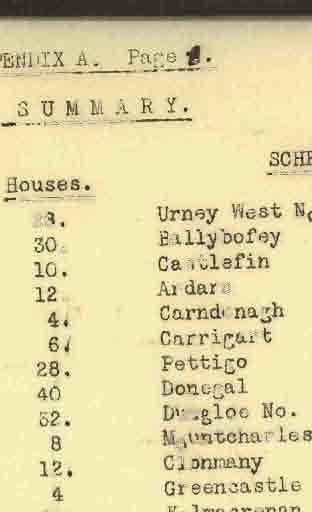 PENDIX A. Page 1.
SUMMARY.
SCHE
Houses.
28. Urney West No
30. Ballybofey
10. Castlefin
12 Ardara
4. Carndonagh
6. Carrigart
28. Pettigo
40 Donegal
32. Dungloe No.
8 Mountcharles
12. Clonmany
4 Greencastle
Kilmacrenan